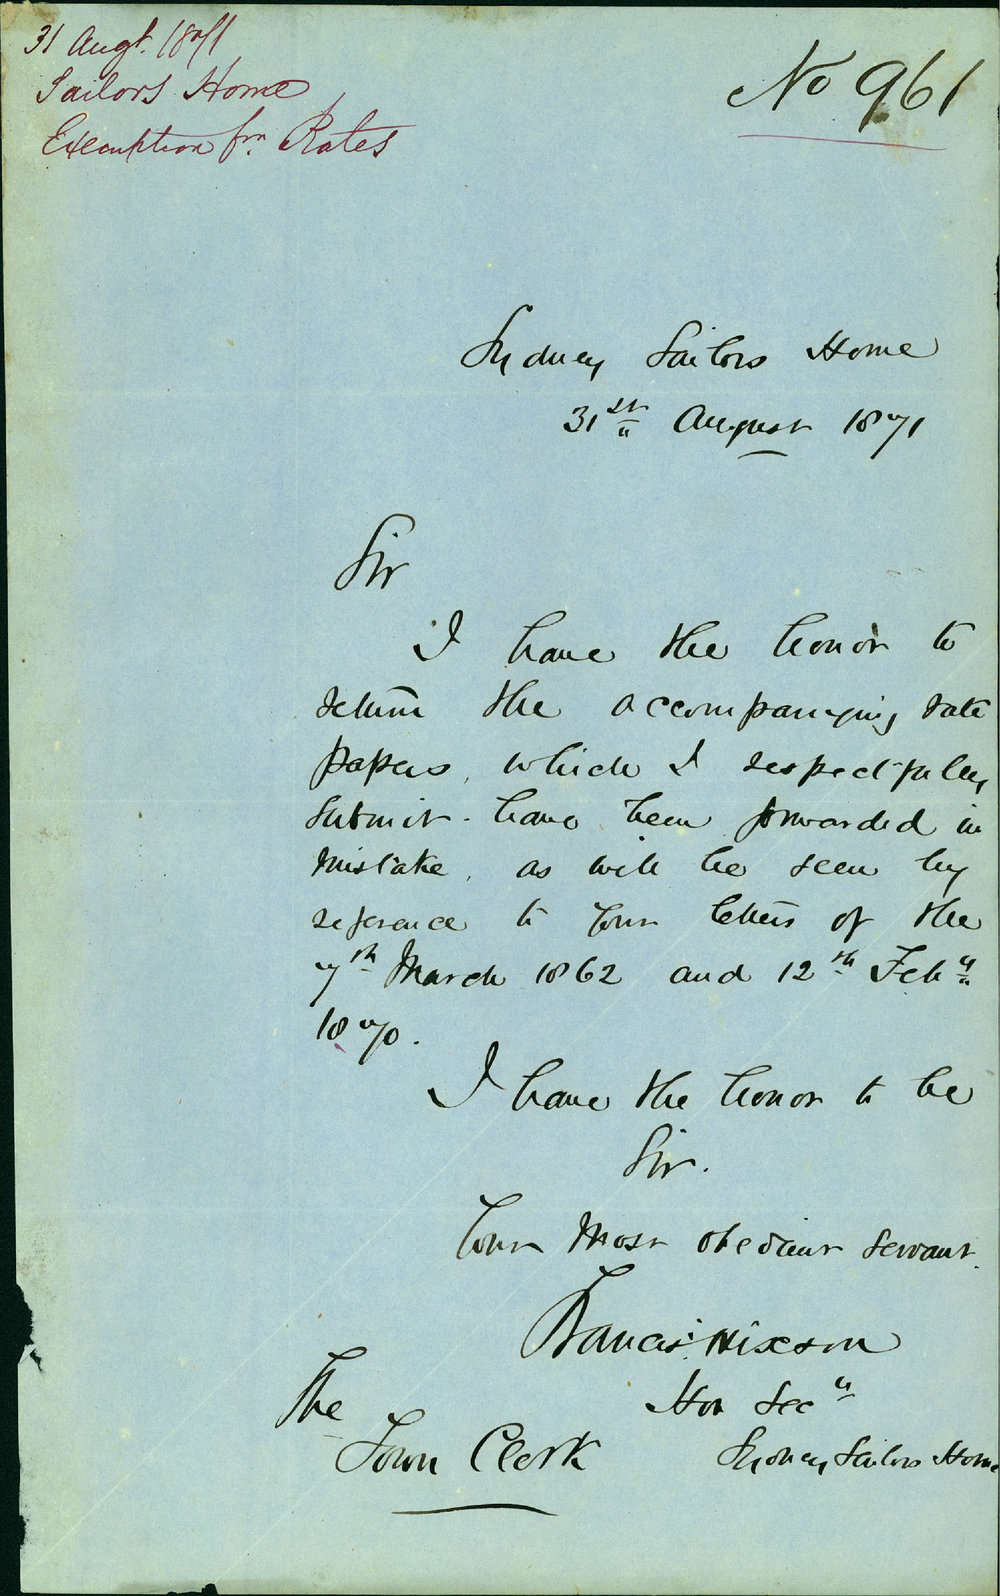 31 Augt. 1871
Sailors Home
Exemption frm Rates
No 961
Sydney Sailors Home
31st August 1871
Sir
I have the honor to
return the accompanying rate
papers, which I respectfully
submit have been forwarded in
mistake, as will be seen by
reference to your letters of the
7th March 1862 and 12th Feby
1870.
I have the honor to be
Sir.
Your Most obedient servant.
Francis Hixson
Hon Secy
Sydney Sailors Home
The
Town Clerk